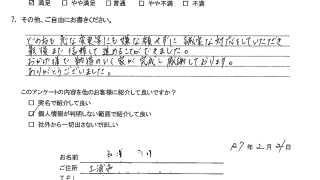 ☑ 満足 □ やや満足 □ 普通 □ やや不満 □ 不満
7. その他、ご自由にお書きください。
どの方も急な変更等にも嫌な顔もせずに誠実な対応をしていただき
最後まで信頼して進めることができました。
おかげ様で納得のいく家が完成し感謝しております。
ありがとうございました。
このアンケートの内容を他のお客様に紹介して良いですか？
□ 実名で紹介して良い
☑ 個人情報が判明しない範囲で紹介して良い
□ 社外から一切出さないでほしい
R7年2月21日
お名前
ご住所 土浦市
TEL